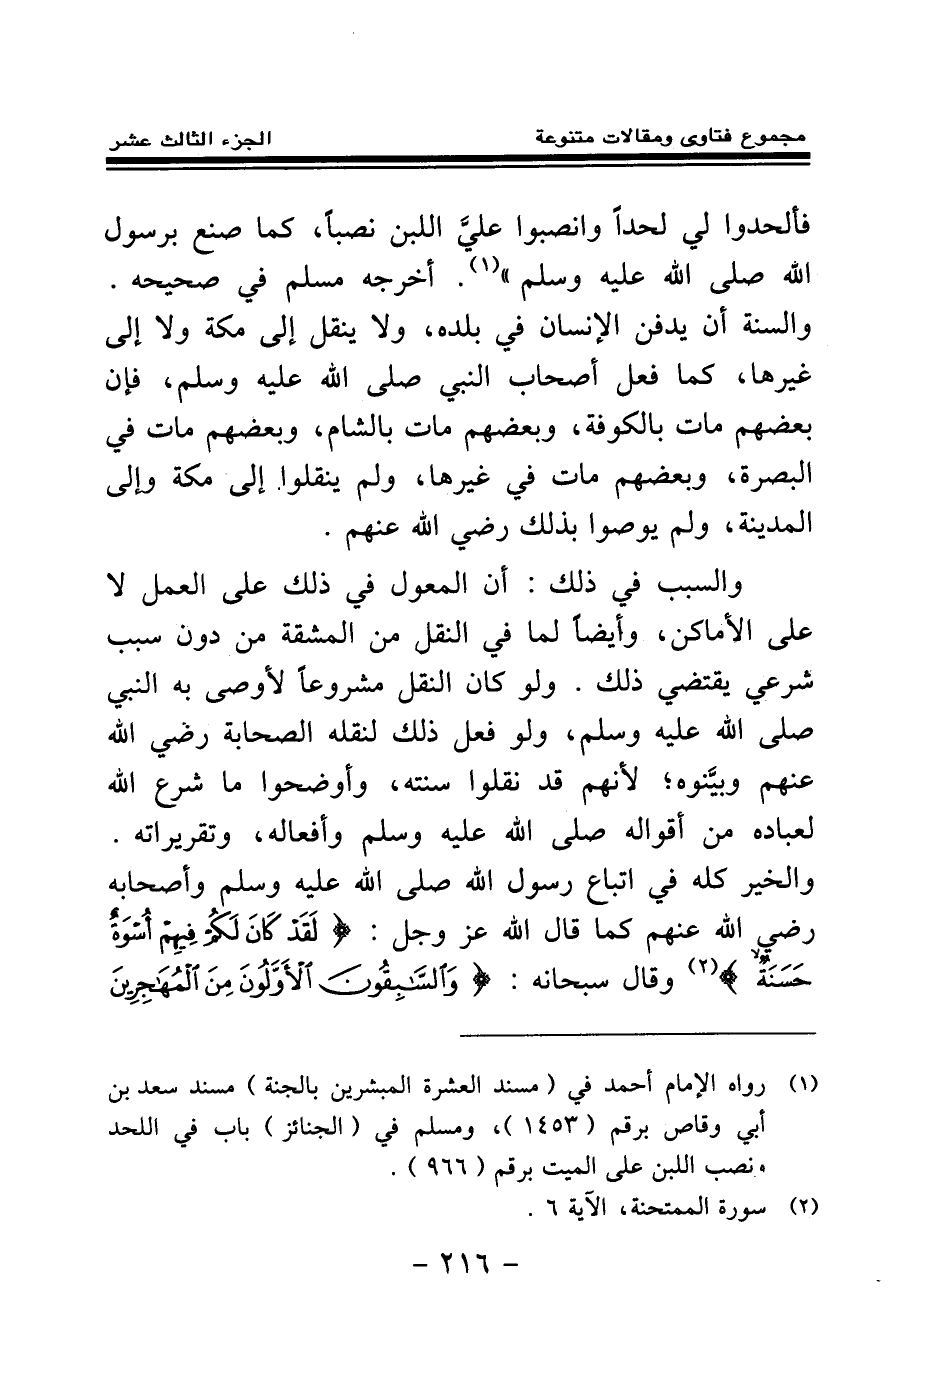 مجموع فتاوى ومقالات متنوعة الجزء الثالث عشر
فألحدوا لي لحداً وانصبوا عليَّ اللبن نصباً، كما صنع برسول
الله صلى الله عليه وسلم »(١). أخرجه مسلم في صحيحه .
والسنة أن يدفن الإنسان في بلده، ولا ينقل إلى مكة ولا إلى
غيرها، كما فعل أصحاب النبي صلى الله عليه وسلم، فإن
بعضهم مات بالكوفة، وبعضهم مات بالشام، وبعضهم مات في
البصرة، وبعضهم مات في غيرها، ولم ينقلوا إلى مكة وإلى
المدينة، ولم يوصوا بذلك رضي الله عنهم .
والسبب في ذلك : أن المعول في ذلك على العمل لا
على الأماكن، وأيضاً لما في النقل من المشقة من دون سبب
شرعي يقتضي ذلك . ولو كان النقل مشروعاً لأوصى به النبي
صلى الله عليه وسلم، ولو فعل ذلك لنقله الصحابة رضي الله
عنهم وبيَّنوه؛ لأنهم قد نقلوا سنته، وأوضحوا ما شرع الله
لعباده من أقواله صلى الله عليه وسلم وأفعاله، وتقريراته .
والخير كله في اتباع رسول الله صلى الله عليه وسلم وأصحابه
رضي الله عنهم كما قال الله عز وجل : ﴿ لَقَدْ كَانَ لَكُمْ فِيهِمْ أُسْوَةٌ
حَسَنَةٌ ﴾(٢) وقال سبحانه : ﴿ وَالسَّٰبِقُونَ ٱلْأَوَّلُونَ مِنَ ٱلْمُهَٰجِرِينَ
(١) رواه الإمام أحمد في ( مسند العشرة المبشرين بالجنة ) مسند سعد بن
أبي وقاص برقم ( ١٤٥٣ )، ومسلم في ( الجنائز ) باب في اللحد
ونصب اللبن على الميت برقم ( ٩٦٦ ) .
(٢) سورة الممتحنة، الآية ٦ .
- ٢١٦ -